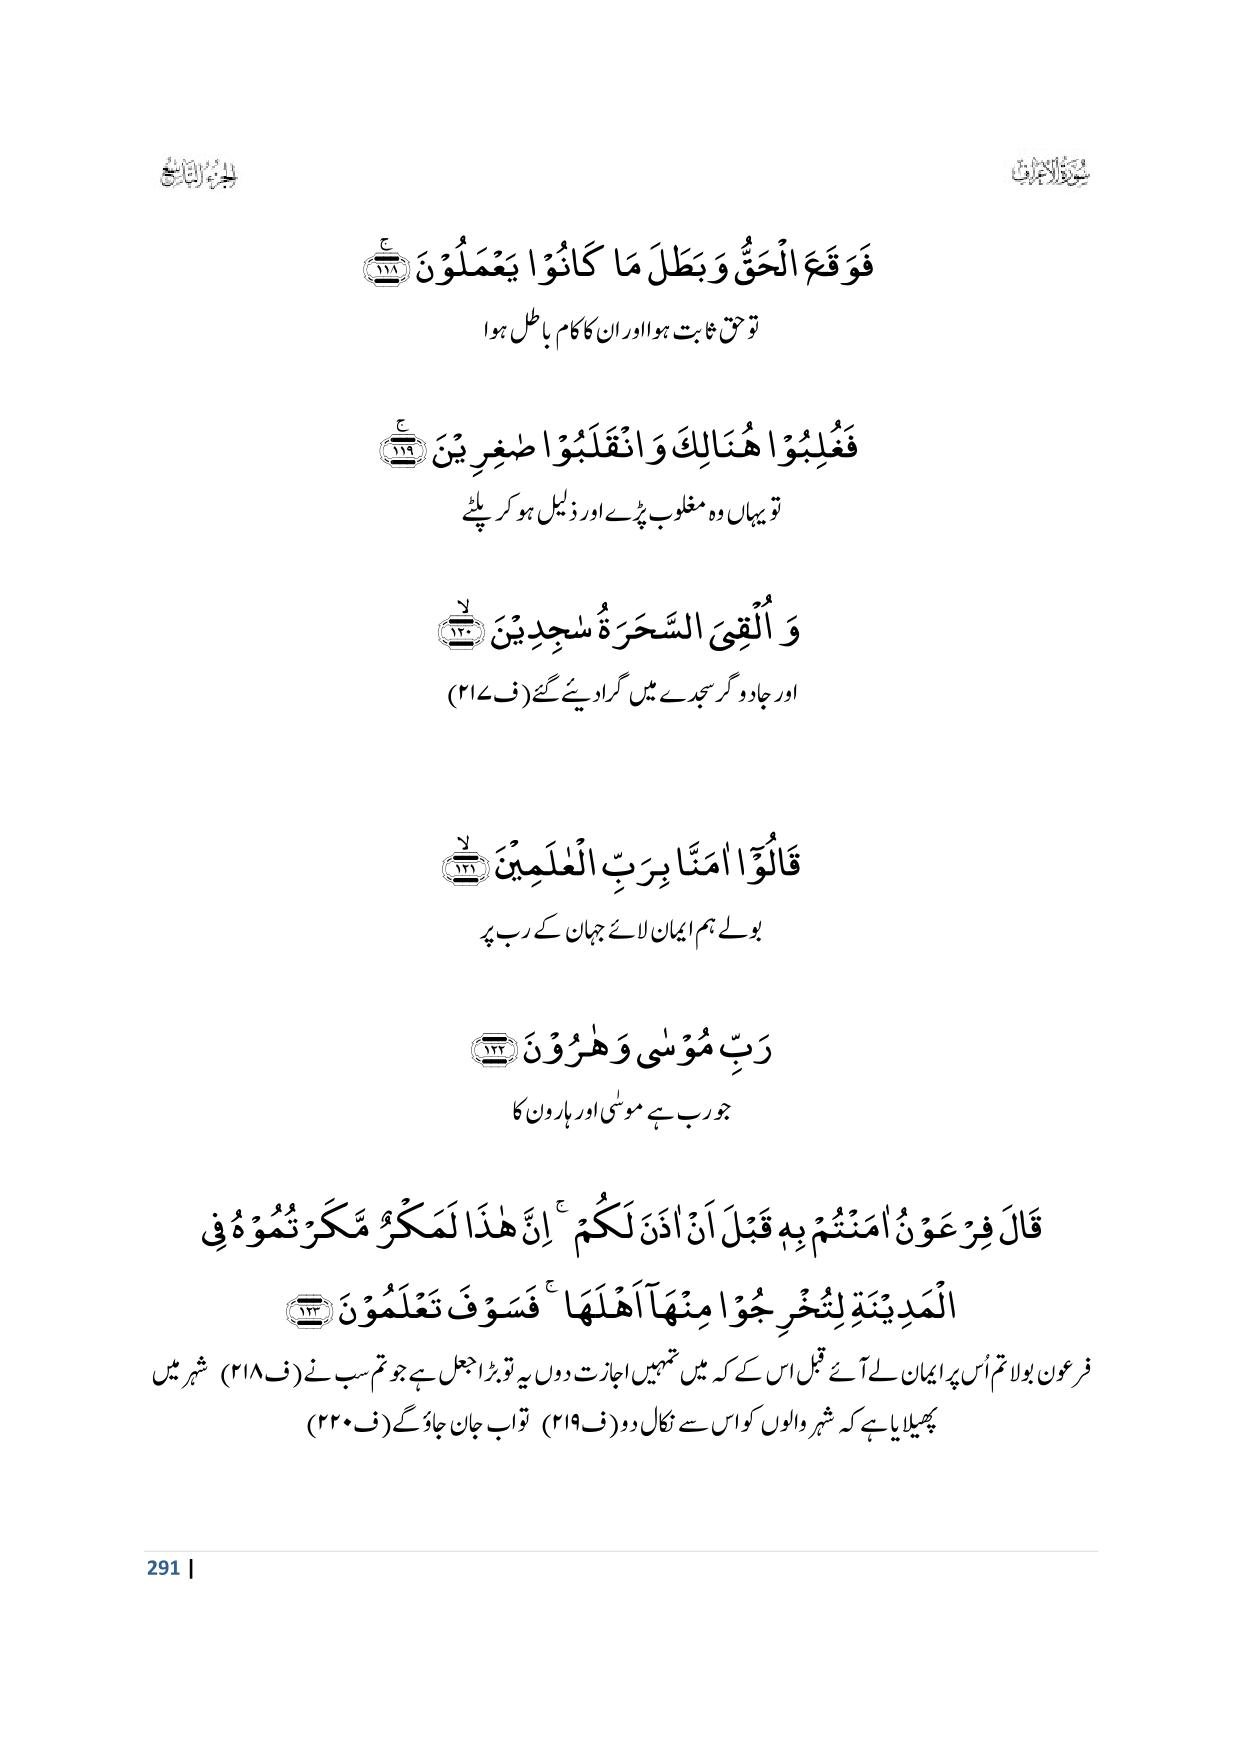 سُورَةُ الْاَعْرَاف
الجزء التاسع
فَوَقَعَ الْحَقُّ وَ بَطَلَ مَا كَانُوْا یَعْمَلُوْنَ ﴿۱۱۸﴾ۚ
تو حق ثابت ہوا اور ان کا کام باطل ہوا
فَغُلِبُوْا هُنَالِكَ وَ انْقَلَبُوْا صٰغِرِیْنَ ﴿۱۱۹﴾ۚ
تو یہاں وہ مغلوب پڑے اور ذلیل ہو کر پلٹے
وَ اُلْقِیَ السَّحَرَةُ سٰجِدِیْنَ ﴿۱۲۰﴾ۙ
اور جادوگر سجدے میں گرا دیئے گئے (ف۲۱۷)
قَالُوْۤا اٰمَنَّا بِرَبِّ الْعٰلَمِیْنَ ﴿۱۲۱﴾ۙ
بولے ہم ایمان لائے جہان کے رب پر
رَبِّ مُوْسٰی وَ هٰرُوْنَ ﴿۱۲۲﴾
جو رب ہے موسٰی اور ہارون کا
قَالَ فِرْعَوْنُ اٰمَنْتُمْ بِهٖ قَبْلَ اَنْ اٰذَنَ لَكُمْ ۚ اِنَّ هٰذَا لَمَكْرٌ مَّكَرْتُمُوْهُ فِی
الْمَدِیْنَةِ لِتُخْرِجُوْا مِنْهَاۤ اَهْلَهَا ۚ فَسَوْفَ تَعْلَمُوْنَ ﴿۱۲۳﴾
فرعون بولا تم اُس پر ایمان لے آئے قبل اس کے کہ میں تمہیں اجازت دوں یہ تو بڑا جعل ہے جو تم سب نے (ف۲۱۸) شہر میں
پھیلایا ہے کہ شہر والوں کو اس سے نکال دو (ف۲۱۹) تو اب جان جاؤ گے (ف۲۲۰)
291 |